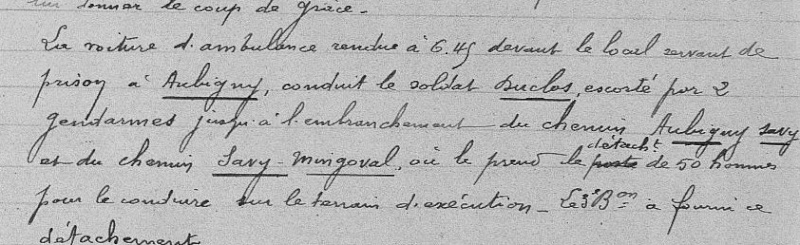 lui donner le coup de grâce.
La voiture d'ambulance rendue à 6.45 devant le local servant de
prison à Aubigny, conduit le soldat Duclos, escorté par 2
gendarmes jusqu'à l'embranchement du chemin Aubigny Savy
et du chemin Savy-Mingoval, où le prend le poste détacht de 50 hommes
pour le conduire sur le terrain d'exécution - Le 3e Bon a fourni ce
détachement